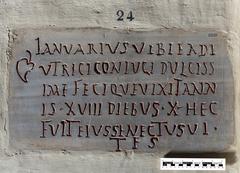 24
IANVARIVS VIBIE ADI
VTRICI CONIVGI DVLCISS
IMAE FECI QVE VIXIT ANN
IS · XVIII DIEBVS · X · HEC
FVIT EIVS SENECTVS VI ·
TES